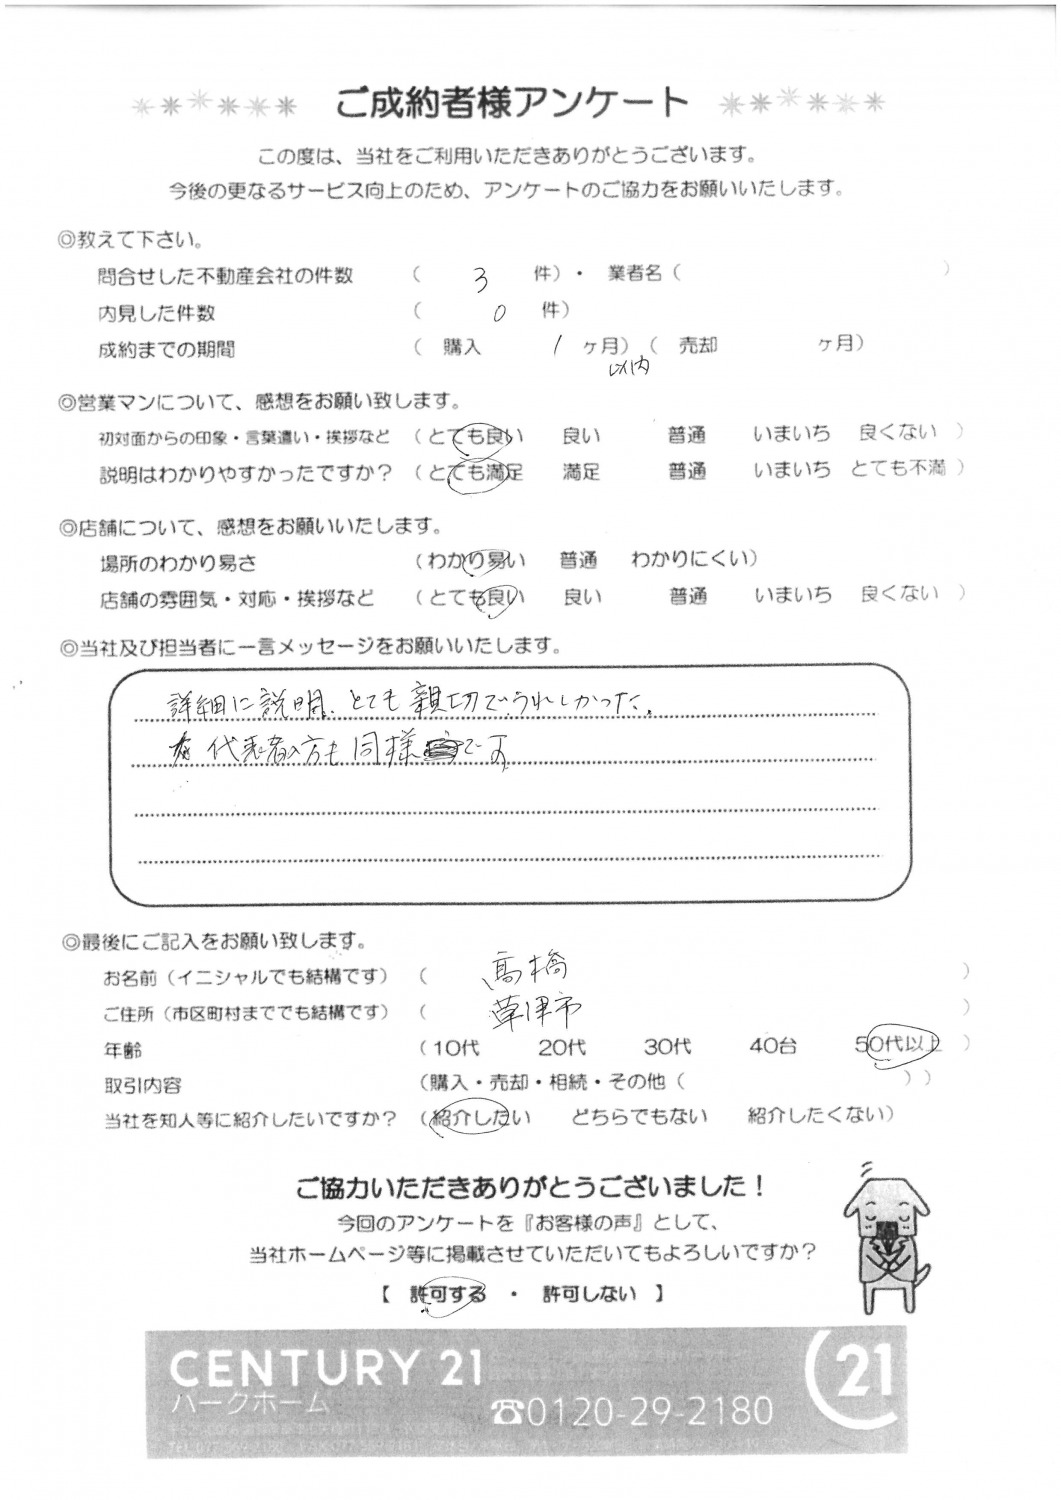 ご成約者様アンケート
この度は、当社をご利用いただきありがとうございます。
今後の更なるサービス向上のため、アンケートのご協力をお願いいたします。
◎教えて下さい。
問合せした不動産会社の件数 ( 3 件)・ 業者名 ( )
内見した件数 ( 0 件)
成約までの期間 ( 購入 1 ヶ月) ( 売却 ヶ月)
以内
◎営業マンについて、感想をお願い致します。
初対面からの印象・言葉遣い・挨拶など (とても良い 良い 普通 いまいち 良くない )
説明はわかりやすかったですか? (とても満足 満足 普通 いまいち とても不満 )
◎店舗について、感想をお願いいたします。
場所のわかり易さ (わかり易い 普通 わかりにくい)
店舗の雰囲気・対応・挨拶など (とても良い 良い 普通 いまいち 良くない )
◎当社及び担当者に一言メッセージをお願いいたします。
詳細に説明、とても親切でうれしかった。
代表者の方も同様です
◎最後にご記入をお願い致します。
お名前(イニシャルでも結構です) ( 高橋 )
ご住所(市区町村まででも結構です) ( 草津市 )
年齢 (10代 20代 30代 40台 50代以上 )
取引内容 (購入・売却・相続・その他 ( ) )
当社を知人等に紹介したいですか? (紹介したい どちらでもない 紹介したくない)
ご協力いただきありがとうございました!
今回のアンケートを『お客様の声』として、
当社ホームページ等に掲載させていただいてもよろしいですか?
【 許可する ・ 許可しない 】
CENTURY 21
パークホーム
☎0120-29-2180
21